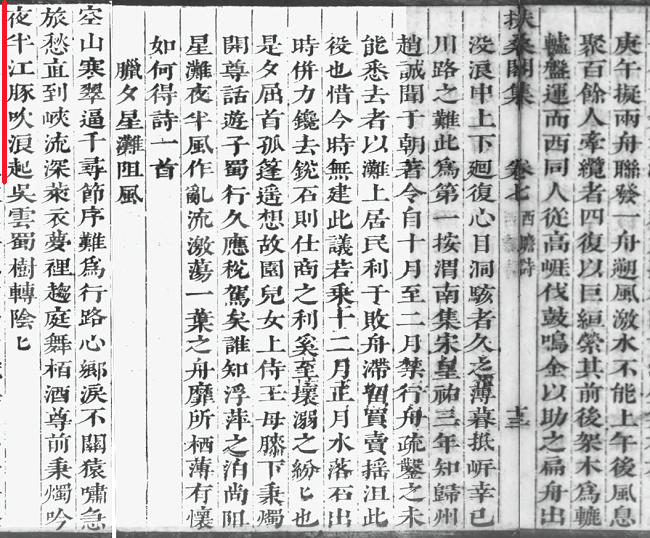 庚午擬兩舟聯發一舟遡風激水不能上午後風息
聚百餘人牽纜者四復以巨絙縈其前後架木爲轆
轤盤運而西同人從高崕伐鼓鳴金以助之扁舟出
扶桑閣集 卷七 西瞻詩 十三
没浪中上下廻復心目洞駭者久之薄暮抵㟁幸已
川路之難此爲第一按渭南集宋皇祐三年知歸州
趙誠聞于朝著令自十月至二月禁行舟疏鑿之未
能悉去者以灘上居民利于敗舟滯留買賣揺沮此
役也惜今時無建此議若乗十二月正月水落石出
時倂力鑱去銳石則仕商之利奚至壊溺之紛匕也
是夕屈首孤篷遙想故園兒女上侍王母膝下秉燭
開尊話遊子蜀行久應稅駕矣誰知浮萍之泊尚阻
星灘夜半風作亂流激蕩一葉之舟靡所栖薄有懷
如何得詩一首
臘夕星灘阻風
空山寒翠逼千尋節序難爲行路心鄉淚不關猿嘯急
旅愁直到峽流深萊衣夢裡趨庭舞栢酒尊前秉燭吟
夜半江豚吹浪起吳雲蜀樹轉陰匕